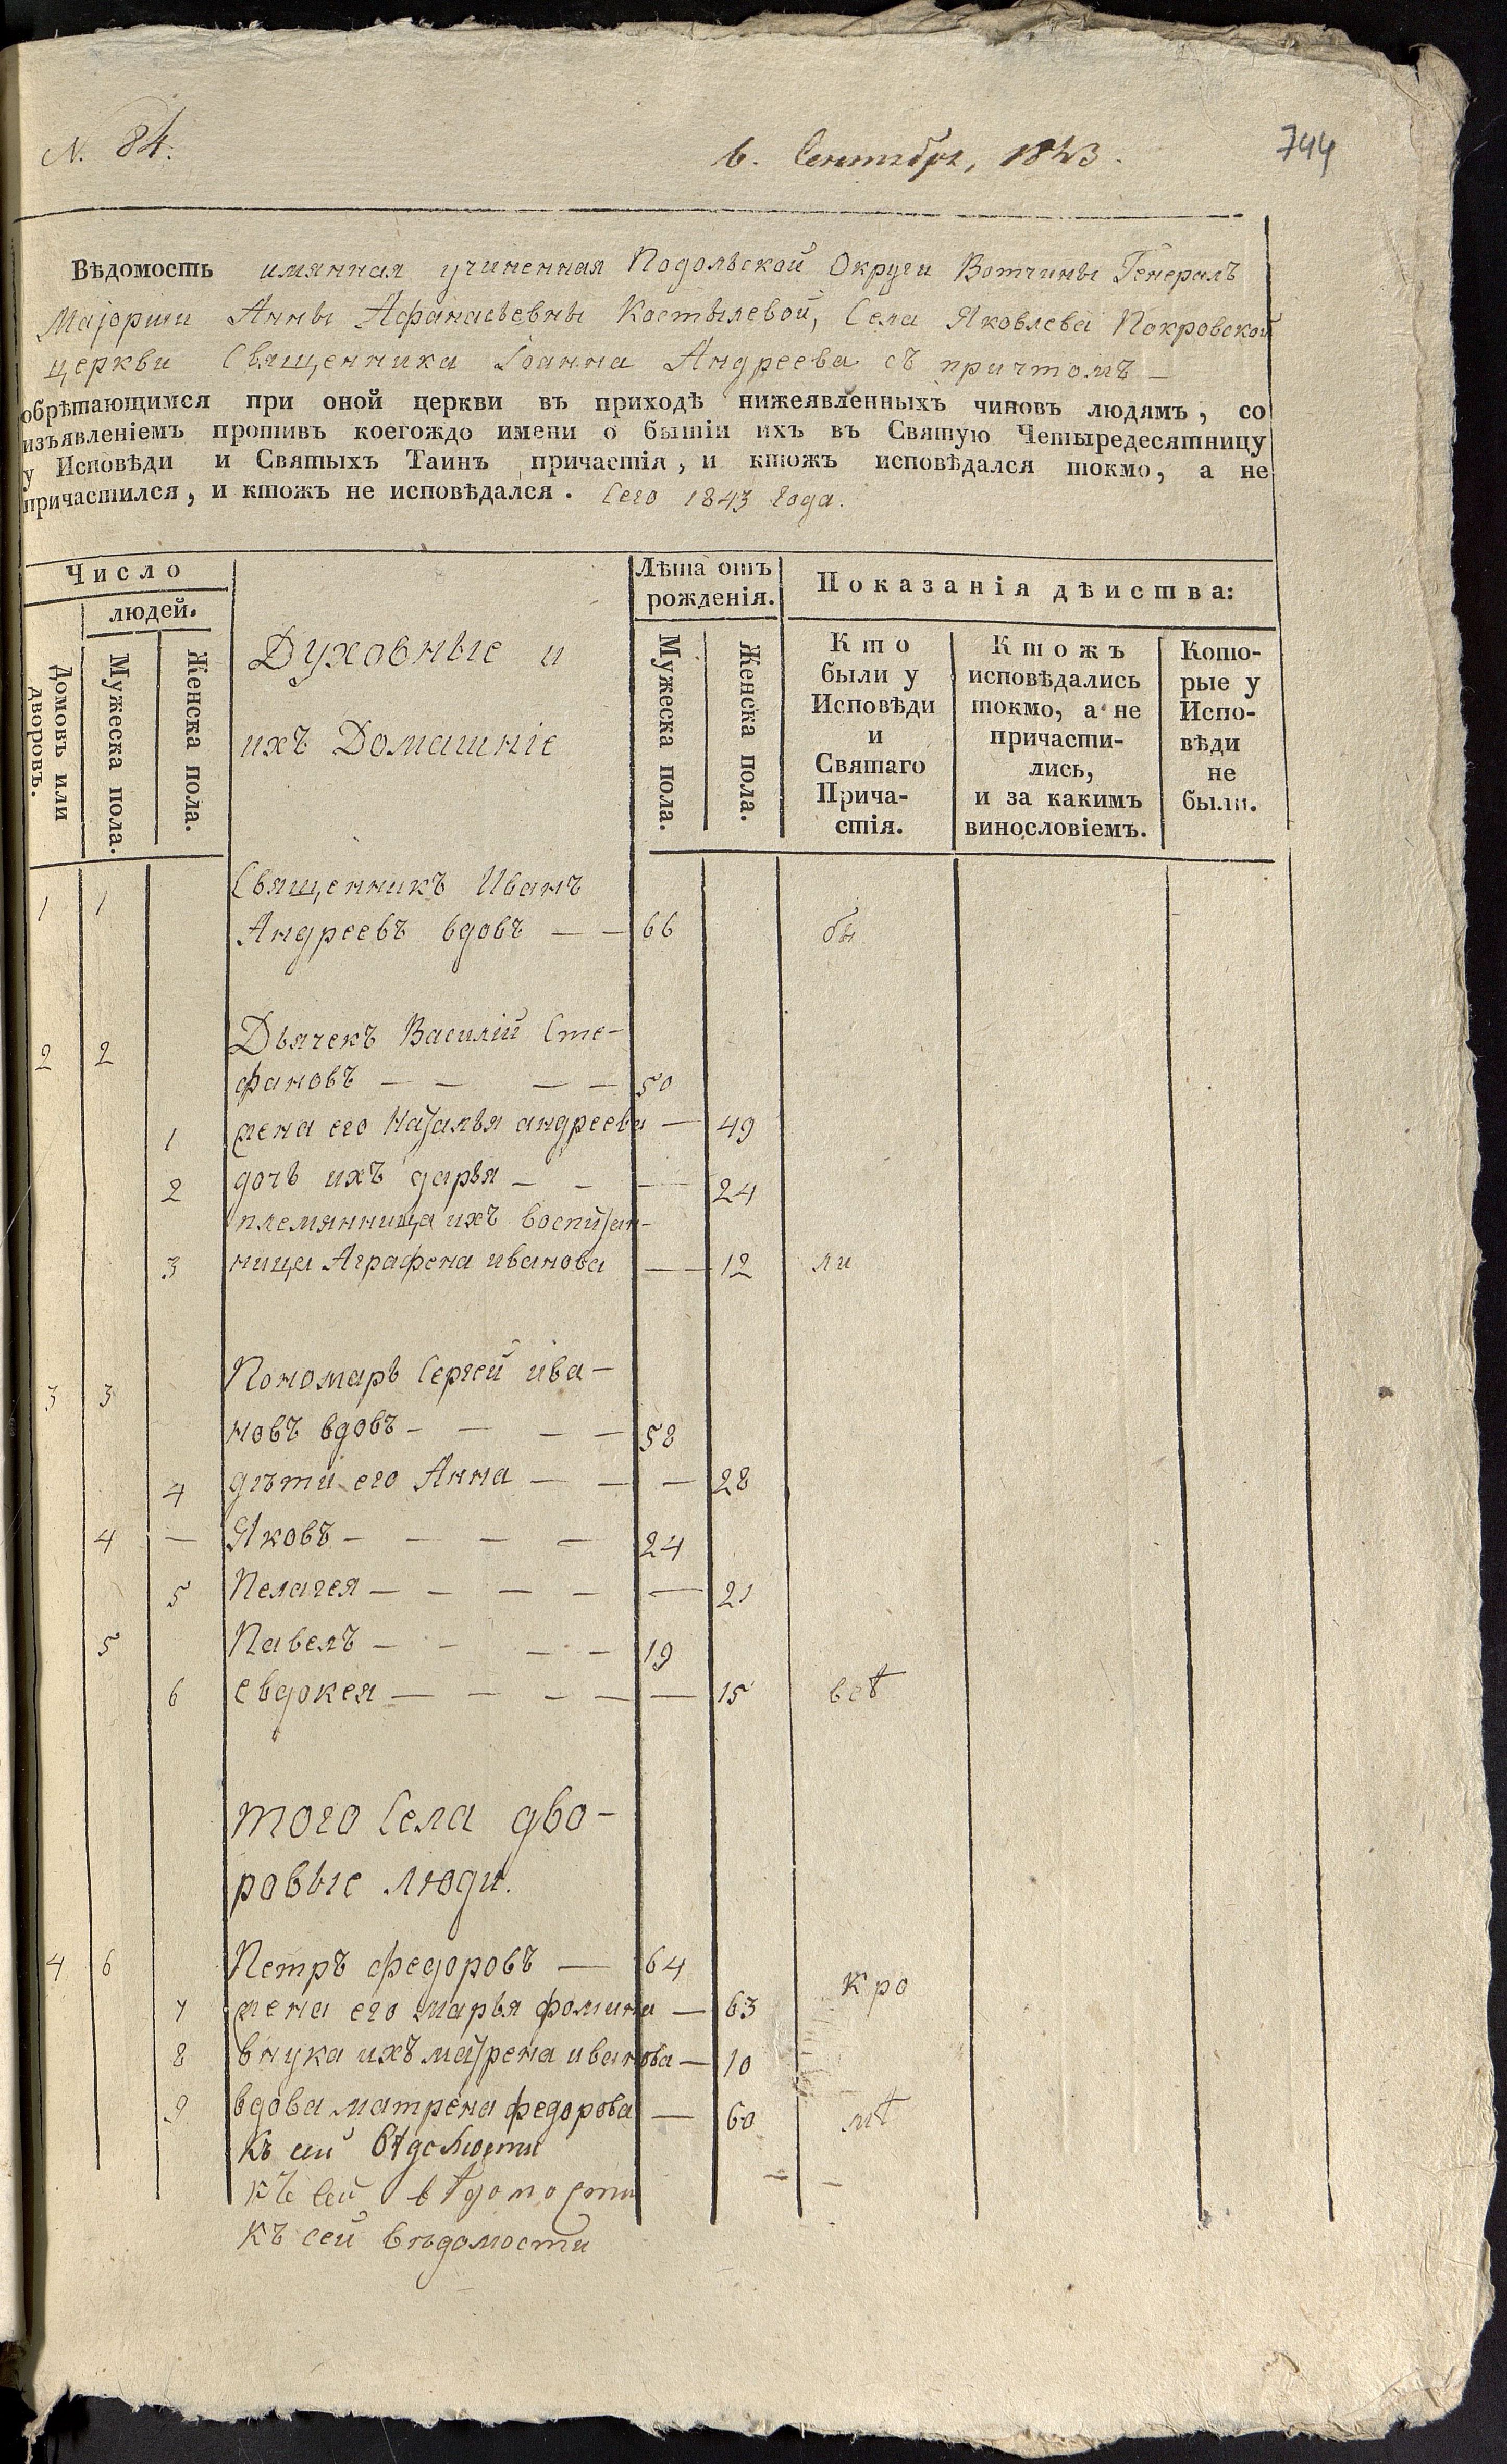 N. 84.
6. Сентября, 1843.
744
Вѣдомость имянная учиненная Подольской Округи Вотчины Генералъ
Маіорши Анны Афанасьевны Костылевой, Села Яковлева Покровской
церкви Священника Іоанна Андреева съ причтомъ —
обрѣтающимся при оной церкви въ приходѣ нижеявленныхъ чиновъ людямъ, со
изъявленіемъ противъ коегождо имени о бытіи ихъ въ Святую Четыредесятницу
у Исповѣди и Святыхъ Таинъ причастія, и ктожъ исповѣдался токмо, а не
причастился, и ктожъ не исповѣдался. Сего 1843 Года.
Число
людей.
Домовъ или дворовъ.
Мужеска пола.
Женска пола.
Духовные и
ихъ Домашніе
Лѣта отъ
рожденія.
Мужеска пола.
Женска пола.
Показанія дѣиства:
Кто
были у
Исповѣди
и
Святаго
Прича-
стія.
Ктожъ
исповѣдались
токмо, а не
причасти-
лись,
и за какимъ
винословіемъ.
Кото-
рые у
Испо-
вѣди
не
были.
1 1 Священникъ Иванъ
Андреевъ вдовъ — — 66 бы
2 2 Дьячекъ Василій Сте-
фановъ — — — — 50
1 жена его Наталья андреева — 49
2 дочь ихъ дарья — — — 24
племянница ихъ воспитан-
3 ница Аграфена иванова — — 12 ли
3 3 Пономарь Сергей ива-
новъ вдовъ — — — — 58
4 дѣти его Анна — — — 28
4 — Яковъ — — — — 24
5 Пелагея — — — — — 21
5 Павелъ — — — — 19
6 евдокея — — — — — 15 всѣ
того Села дво-
ровые люди.
4 6 Петръ федоровъ — 64
кро
7 жена его марья фомина — 63
8 внука ихъ матрена иванова — 10
9 вдова матрена федорова — 60 мѣ
Къ сей вѣдомости
къ сей вѣдомости
Къ сей вѣдомости